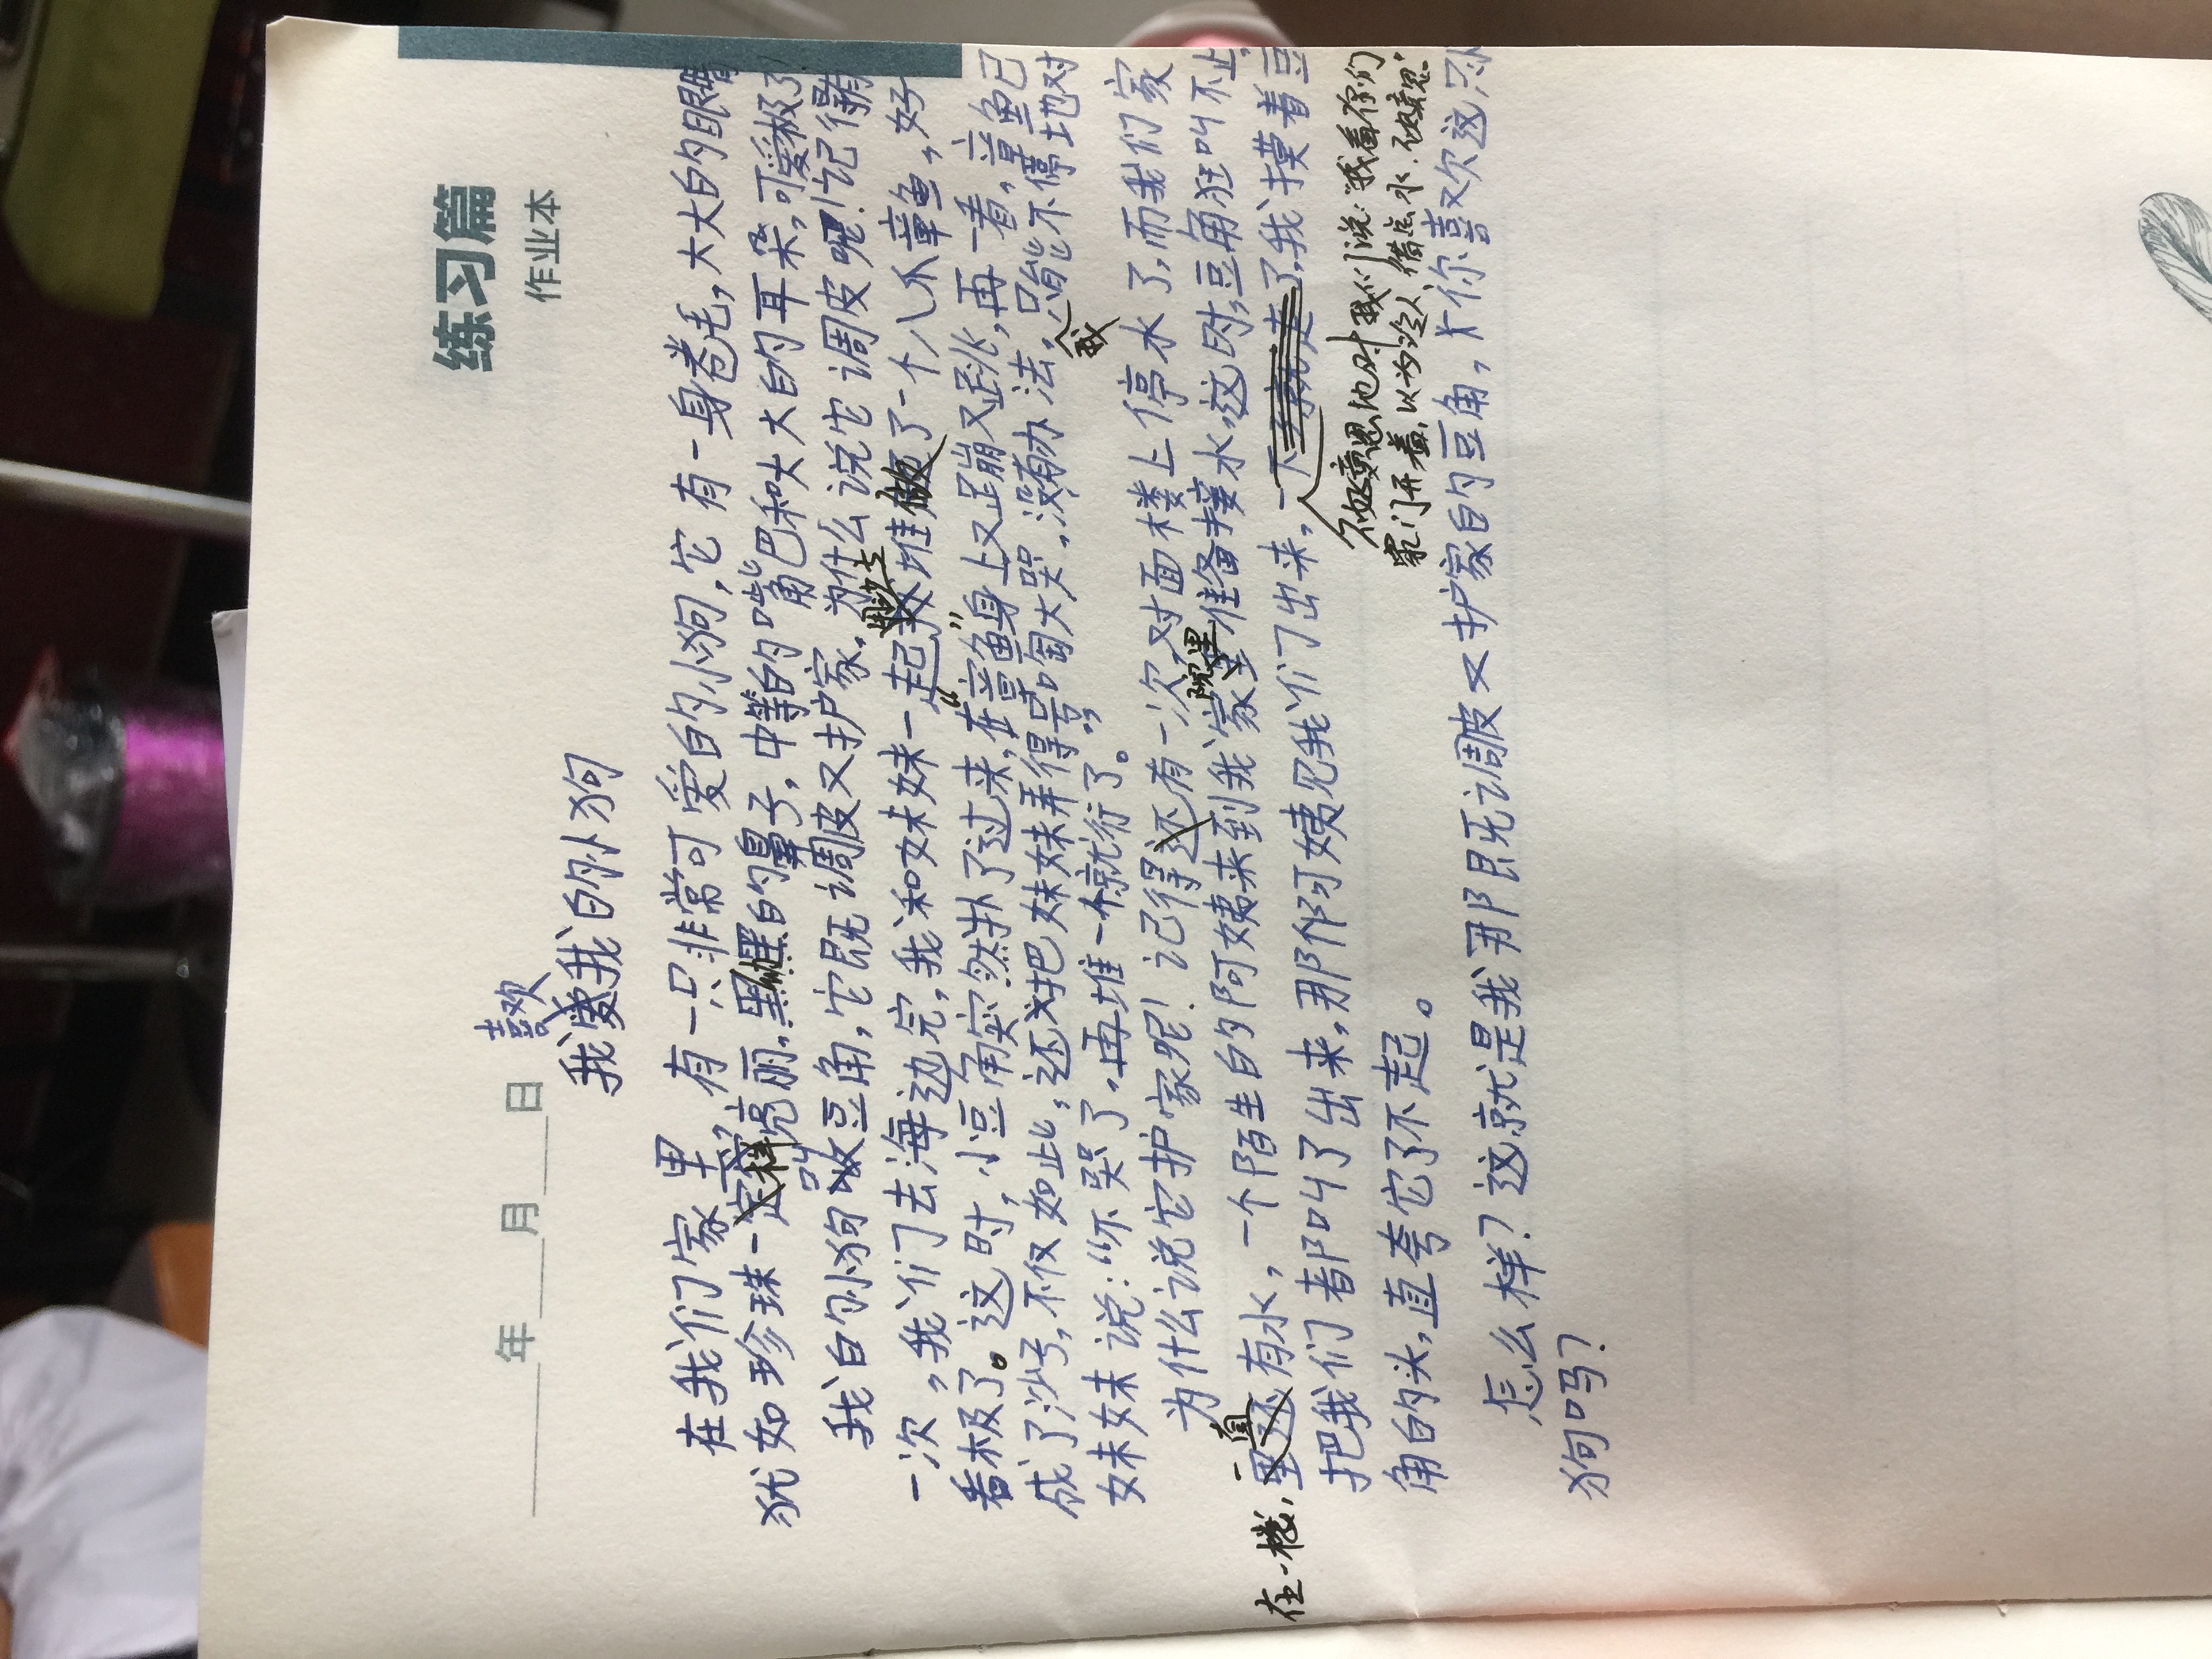 练习篇
作业本
年 月 日
喜欢
我爱我的小狗
在我们家里,有一只非常可爱的小狗,它有一身卷毛,大大的眼睛
犹如珍珠一样亮丽,黑黑的鼻子,中等的嘴巴和大大的耳朵,可爱极了
我的小狗叫豆角,它既调皮又护家。为什么说它调皮呢!记得有
一次,我们去海边玩,我和妹妹一起堆了一个八爪章鱼,好
看极了。这时,小豆角突然扑了过来,在“章鱼”身上又蹦又跳,再一看,章鱼已
成了沙子,不仅如此,还把妹妹弄得号啕大哭,没有办法,我只能不停地对
妹妹说:“不哭了,再堆一个就行了。”
为什么说它护家呢!记得有一次,对面楼上停水了,而我们家
在一楼,一直有水,一个陌生的阿姨来到我家院里准备接水,这时,豆角狂叫不止,
把我们都叫了出来,那阿姨见我们出来,
不好意思地对我们说:“我看你们
家门开着,以为没人,借点水,不好意思。”
我摸着豆
角的头,直夸它了不起。
怎么样?这就是我那既调皮又护家的豆角,你喜欢这只小
狗吗?